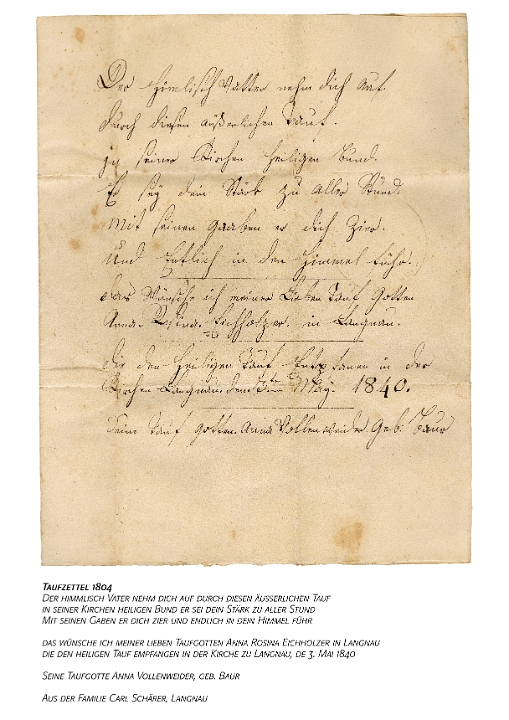 Der Himlisch Vatter nehm dich auf.
durch diesen äusserlichen Tauf.
seiner Kirchen heiligen Bund.
Er sey dein Stärk zu aller Stund.
Mit seinen Gaaben er dich Zier.
und Entlich in den Himmel führ.
das Wünsche ich meiner Lieben Tauf Gotten
Anna. Eichholzer. in Langnau.
die den Heiligen Tauf in der
Kirchen Langnau. May. 1840.
Tauf Gotten. Anna Vollenweider. Geb. Baur
TAUFZETTEL 1804
DER HIMMLISCH VATER NEHM DICH AUF DURCH DIESEN ÄUSSERLICHEN TAUF
IN SEINER KIRCHEN HEILIGEN BUND ER SEI DEIN STÄRK ZU ALLER STUND
MIT SEINEN GABEN ER DICH ZIER UND ENDLICH IN DEIN HIMMEL FÜHR
DAS WÜNSCHE ICH MEINER LIEBEN TAUFGOTTEN ANNA ROSINA EICHHOLZER IN LANGNAU
DIE DEN HEILIGEN TAUF EMPFANGEN IN DER KIRCHE ZU LANGNAU, DE 3. MAI 1840
SEINE TAUFGOTTE ANNA VOLLENWEIDER, GEB. BAUR
AUS DER FAMILIE CARL SCHÄRER, LANGNAU